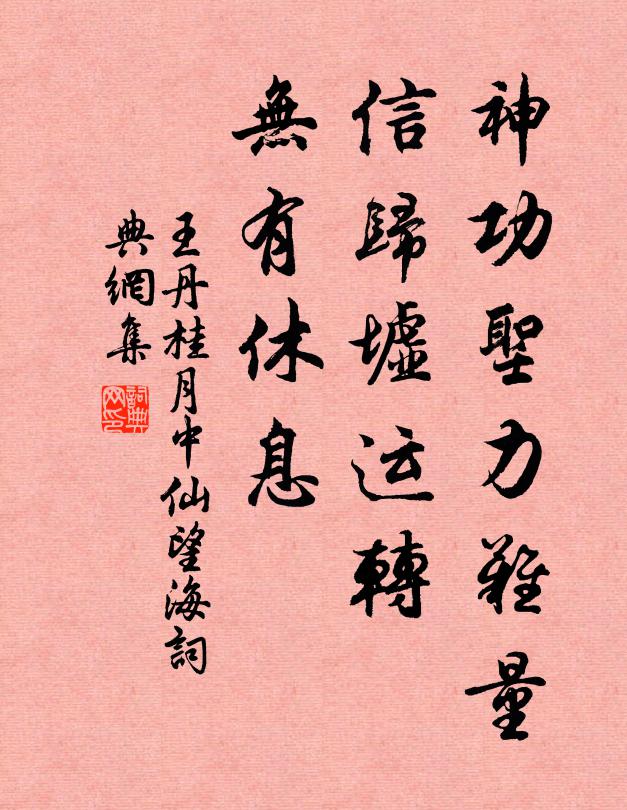 神功聖力難量
信歸墟运轉
無有休息
王丹桂月中仙望海詞
典網集
詞典网印